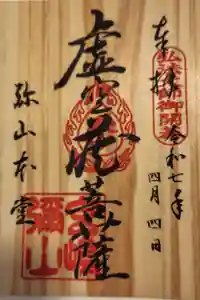 奉拝
弘法大師御開基
令和七年
四月四日
虚空蔵菩薩
弥山本堂
彌山